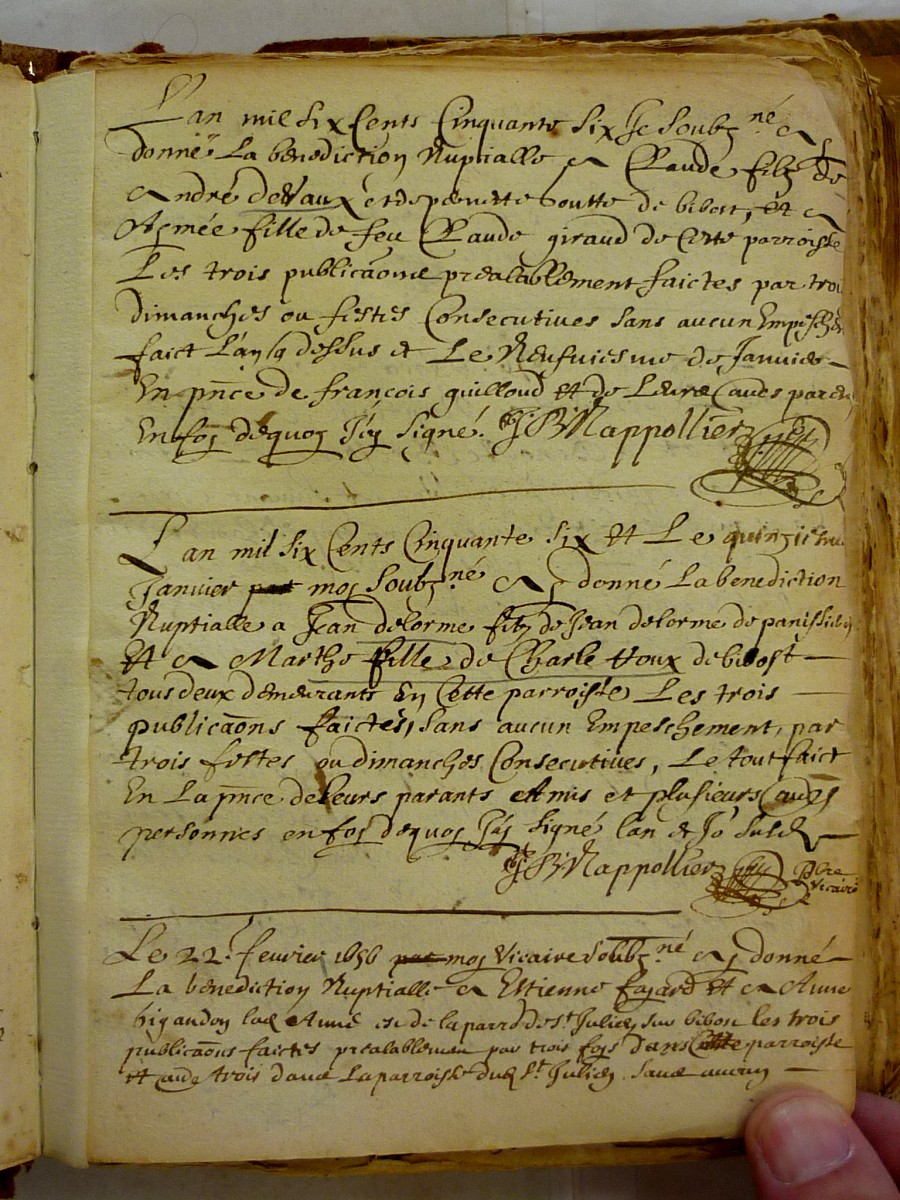 L'an mil six Cents Cinquante six Je soubzné ay
donné La benediction Nuptialle a Claude filz de
André deVaux et de pernette Goutte de bibost, et a
Aymée fille de feu Claude giraud de Cette parroisse
Les trois publicaõns prealablement faictes par trois
dimanches ou festes Consecutives sans aucun Empesche
faict L'an q dessus et Le Neufviesme de Janvier
En pñce de françois guilloud et de Leurs
En foy dequoy J'ay signé. JB Mappollier
L'an mil six Cents Cinquante six et Le quinziesme
Janvier par moy Soubzné ay donné La benediction
Nuptialle a Jean delorme filz de Jean delorme de panissie
Et a Marthe fille de Charle Houx de bibost
tous deux demeurants En Cette parroisse Les trois
publicaõns faictes, sans aucun Empeschement, par
trois festes ou dimanches Consecutives, Le tout faict
En La pñce de Leurs parants Amis et plusieurs aues
personnes en foy dequoy J'ay signé l'an et Jo susd
JB Mappollier pbre
Vicaire
Le 22e fevrier 1656 par moy Vicaire Soubzné ay donné
La benediction Nuptialle a Estienne fayard Et a Anne
bigaudon lad Anne de la parr de St Julien sur bibost les trois
publicaõns faictes prealablement par trois foys dans Cette parroisse
et trois dans La parroisse dud St Julien sans aucun